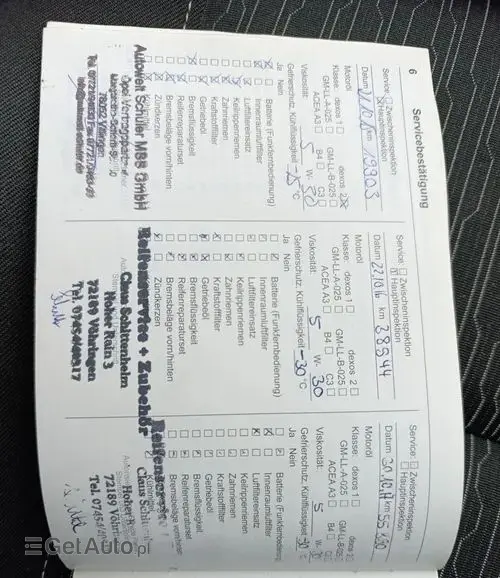 6
Servicebestätigung
Service: Zwischeninspektion
Hauptinspektion
Datum km 19903
Motoröl
Klasse: dexos 1 dexos 2
GM-LL-A-025 GM-LL-B-025
ACEA A3 B4 C3
Viskosität: 5 W- 30
Gefrierschutz, Kühlflüssigkeit -25 °C
Ja Nein
Batterie (Funkfernbedienung)
Innenraumluftfilter
Luftfiltereinsatz
Keilrippenriemen
Zahnriemen
Kraftstofffilter
Getriebeöl
Bremsflüssigkeit
Reifenreparaturset
Bremsbeläge vorn/hinten
Zündkerzen
Autowelt Schuler MBS GmbH
Opel Vertragspartner
78052 Villingen
Service: Zwischeninspektion
Hauptinspektion
Datum 22.10.16 km 38944
Motoröl
Klasse: dexos 1 dexos 2
GM-LL-A-025 GM-LL-B-025
ACEA A3 B4 C3
Viskosität: 5 W- 30
Gefrierschutz, Kühlflüssigkeit -30 °C
Ja Nein
Batterie (Funkfernbedienung)
Innenraumluftfilter
Luftfiltereinsatz
Keilrippenriemen
Zahnriemen
Kraftstofffilter
Getriebeöl
Bremsflüssigkeit
Reifenreparaturset
Bremsbeläge vorn/hinten
Zündkerzen
Reifenservice + Zubehör
Claus Schlittenhelm
Hoher Rain 3
72189 Vöhringen
Service: Zwischeninspektion
Hauptinspektion
Datum 30.10.17 km
Motoröl
Klasse: dexos 1 dexos 2
GM-LL-A-025 GM-LL-B-025
ACEA A3 B4
Viskosität: 5 W-
Gefrierschutz, Kühlflüssigkeit
Ja Nein
Batterie (Funkfernbedienung
Innenraumluftfilter
Luftfiltereinsatz
Keilrippenriemen
Zahnriemen
Kraftstofffilter
Getriebeöl
Bremsflüssigkeit
Reifenreparaturset
Bremsbeläge vorn/hinten
Claus Schlitt
Hoher R
72189 Vöhr
GetAuto.pl